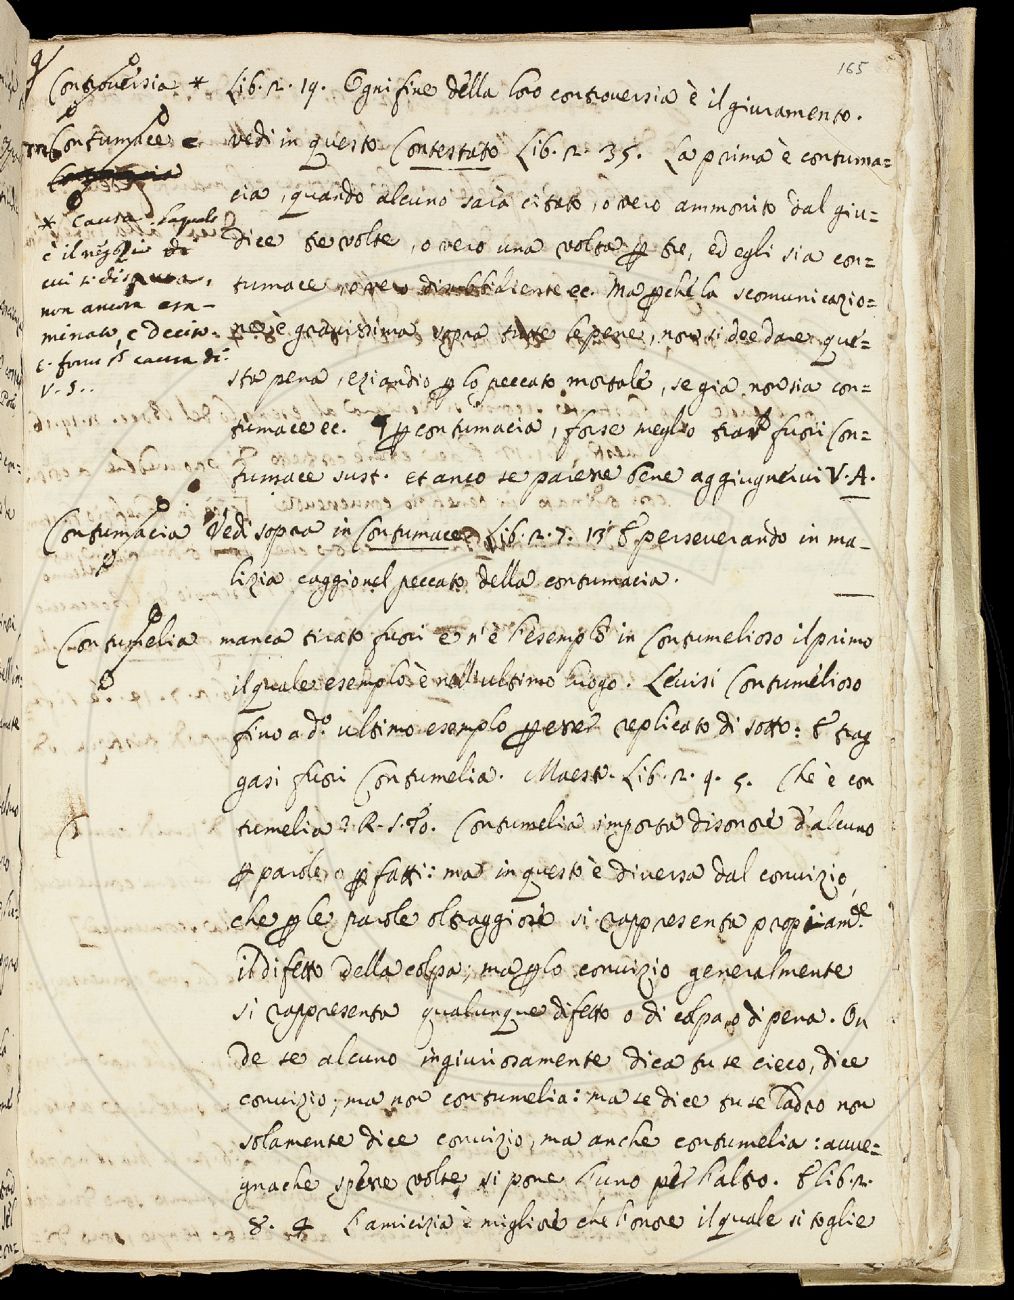 165
Controversia * Lib. 2. 19. Ogni fine della loro controversia è il giuramento.
Contumace e vedi in questo Contestato Lib. 2. 35. La prima è contuma=
cia, quando alcuno sarà citato, o vero ammonito dal giu=
dice tre volte, o vero una volta p tre, ed egli sia con=
tumace, o vero disubbidiente ec. Ma pchè la scomunicazio=
ne è gravissima sopra tutte le pene, non si dee dare que=
sta pena, eziandio p lo peccato mortale, se già non sia con=
tumace ec. p contumacia, forse meglio trar fuori Con=
tumace sust. et anco se paresse bene aggiugnervi V. A.
* causa laquale
è il negozio di
cui si disputa,
non ancora esa-
minato, e deciso.
e. forus s causa di-
V. S..
Contumacia Vedi sopra in Contumace Lib. 2. 7. 13 E perseverando in ma-
lizia caggionel peccato della contumacia.
Contumelia manca tirato fuori e n'è l'esemplo in Contumelioso il primo
il quale esemplo è nell'ultimo luogo. Levisi Contumelioso
fino a do ultimo esemplo p esser replicato di sotto: E trag
gasi fuori Contumelia. Maestr. Lib. 2. 9. 5. Che è con
tumelia? R. S. To. Contumelia importa disonore d'alcuno
p parole, o p fatti: ma in questo è diversa dal convizio,
che p le parole oltraggiose si rappresenta propiamte
il difetto della colpa; ma p lo convizio generalmente
si rappresenta qualunque difetto o di colpa, o di pena. On
de se alcuno ingiuriosamente dica tu se cieco, dice
convizio, ma non contumelia: ma se dice tu se ladro non
solamente dice convizio, ma anche contumelia: avve=
gnache spesse volte si pone l'uno per l'altro. E lib. 2.
8. 4 L'amicizia è migliore che l'onore il quale si toglie